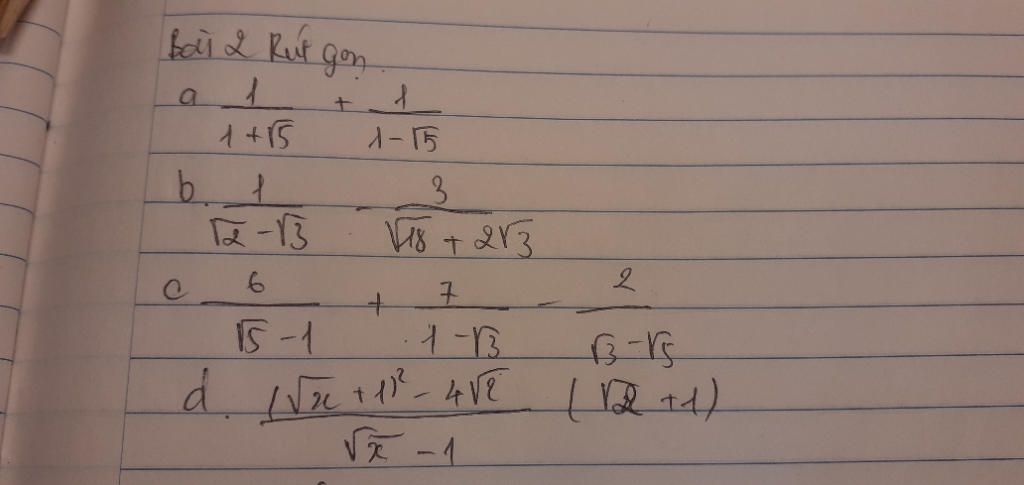 Bài 2 Rút gọn.
a 1/(1+√5) + 1/(1-√5)
b. 1/(√2-√3) - 3/(√18 + 2√3)
c 6/(√5-1) + 7/(1-√3) - 2/(√3-√5)
d. ((√x+1)² - 4√x)/(√x-1) (√x+1)